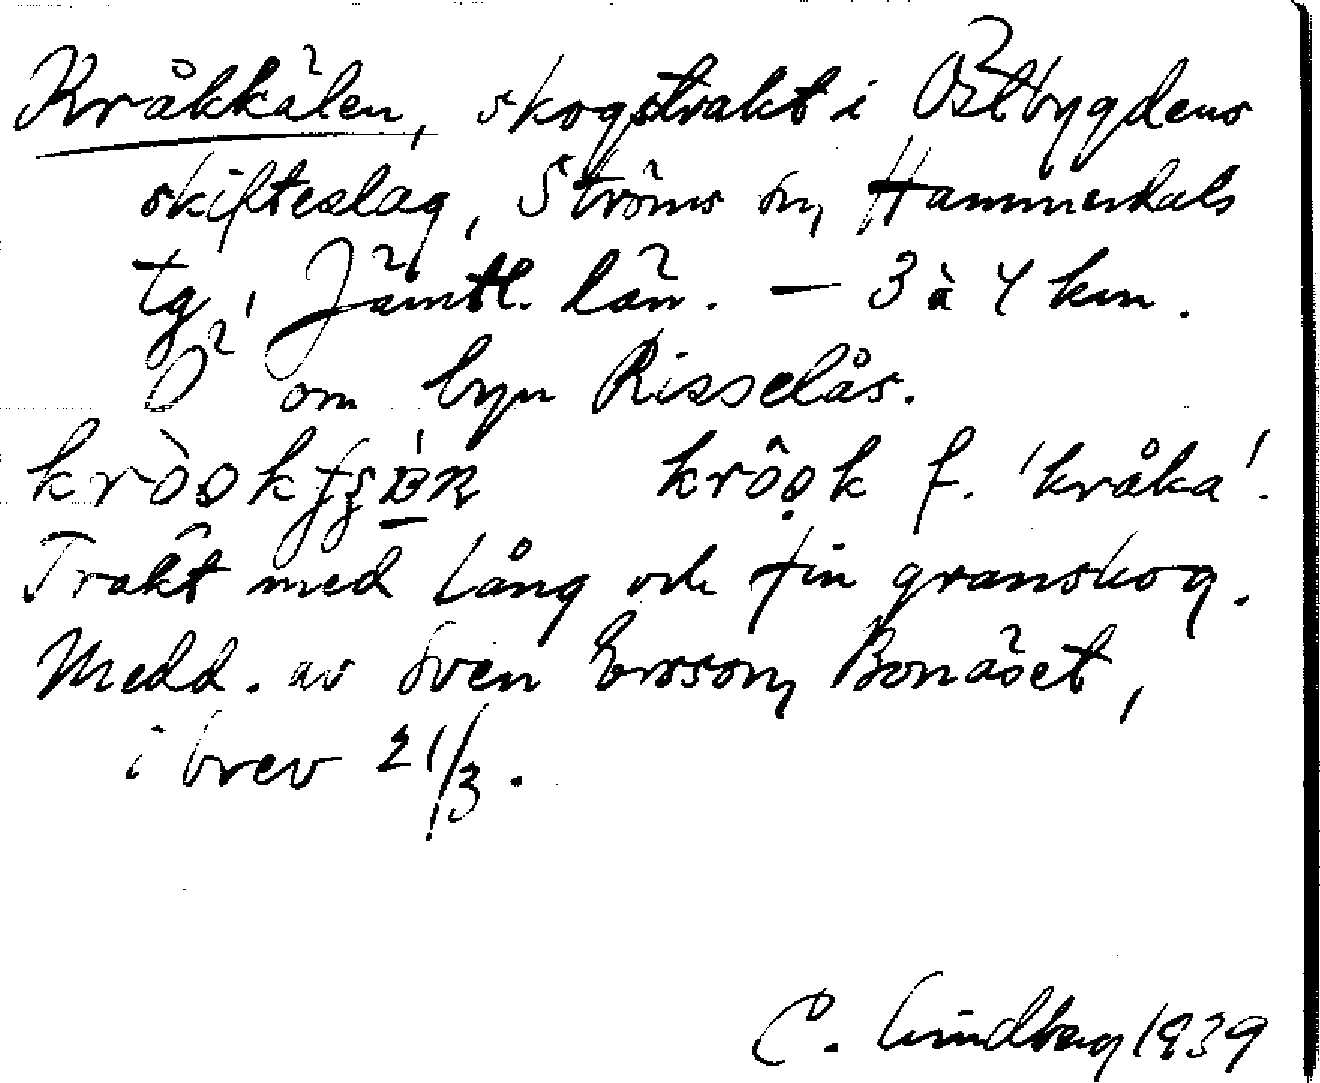 Kråkkälen, skogstrakt i Östbygdens
skifteslag, Ströms sn, Hammerdals
tg, Jämtl. län. — 3 à 4 km.
Ö om byn Risselås.
krôǫk f. 'kråka'.
Trakt med lång och fin granskog.
Medd. av Sven Ersson, Bonäset,
i brev 21/3.
C. Lindberg 1939